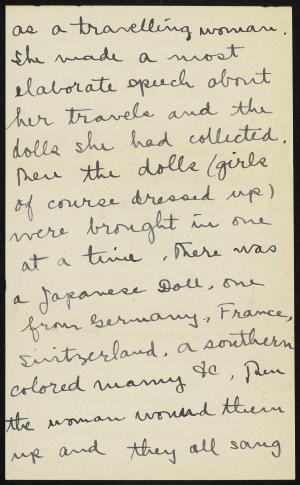 as a travelling woman.
She made a most
elaborate speech about
her travels and the
dolls she had collected.
Then the dolls (girls
of course dressed up)
were brought in one
at a time. There was
a Japanese Doll, one
from Germany, France,
Switzerland, a southern
colored mamy &c, Then
the woman wound them
up and they all sang